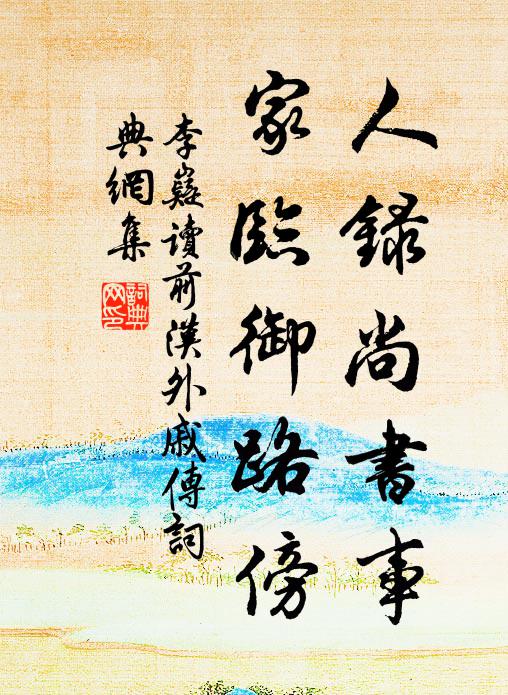 人録尚書事
家臨御路傍
李嶷讀前漢外戚傳詞
典網集
詞典
网印